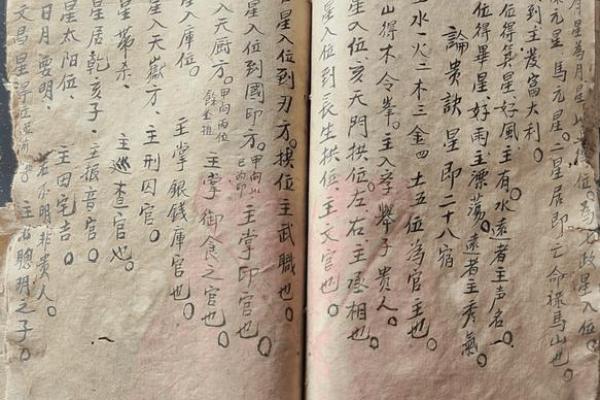 月星為月星
祿元星馬元星。二星居即亡命祿馬山也。
到主發富大利。
位得箕星好風主有水。遠者主声名。
位得畢星好雨主漂蕩。遠者主秀氣。
論貴訣星即二十八宿
水一火二木三金四土五位為官主也。
山得木令拳。主入字舉子貴人。
星入位亥天門拱位。左右主丞相也。
星入位到長生拱位。主文官也。
星入位到刃方。拱位主武職也。
星入位到國印方。甲向山已丙印主掌印官也。
入天厨方。甲向丙位主掌御食之官也。
星入庫位。主掌銀錢庫官也。
星入天嶽方。主刑囚官。
星帶杀。主巡查官也。
星居乾亥子。主振音官。
星太阳位。主田宅吉。
日月要明。若不明非貴人。
文昌星 主出聰明之子。